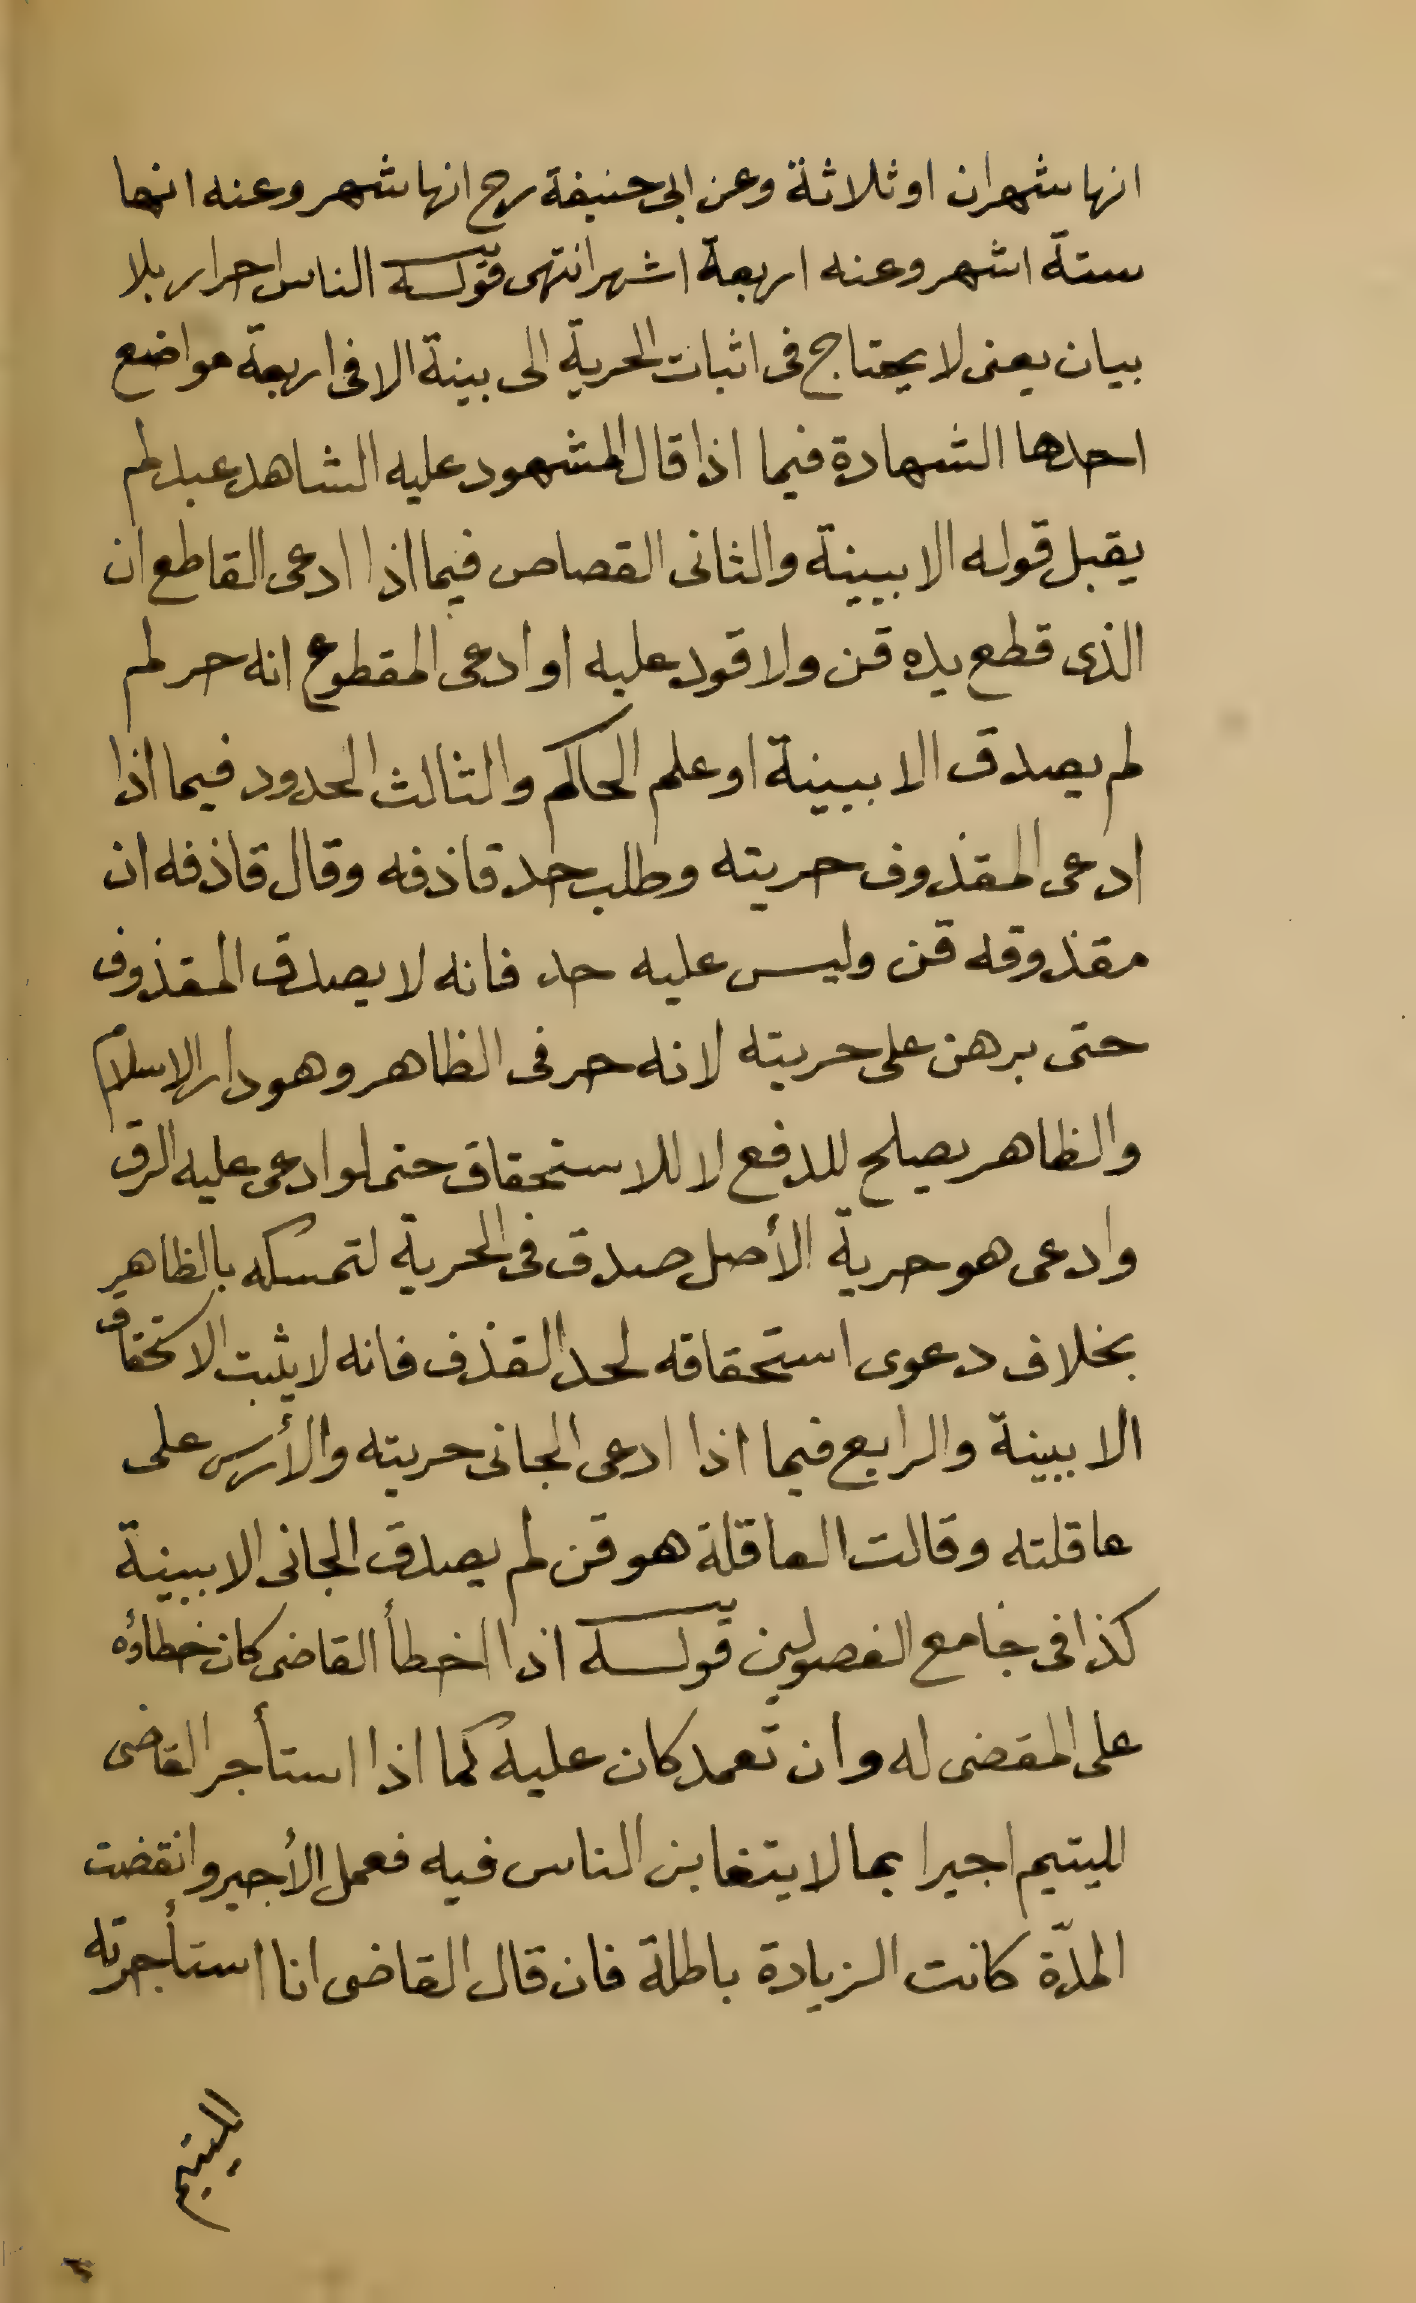 انها شهران او ثلاثة وعن ابى حنيفة رح انها شهر وعنه انها
ستة اشهر وعنه اربعة اشهر انتهى قوله الناس احرار بلا
بيان يعنى لا يحتاج فى اثبات الحرية الى بينة الا فى اربعة مواضع
احدها الشهادة فيما اذا قال المشهود عليه الشاهد عبد لم
يقبل قوله الا ببينة والثانى القصاص فيما اذا ادعى القاطع ان
الذى قطع يده قن ولا قود عليه او ادعى المقطوع انه حر لم
لم يصدق الا ببينة او علم الحاكم والثالث الحدود فيما اذا
ادعى المقذوف حريته وطلب حد قاذفه وقال قاذفه ان
مقذوقه قن وليس عليه حد فانه لا يصدق المقذوف
حتى برهن على حريته لانه حر فى الظاهر وهو دار الاسلام
والظاهر يصلح للدفع لا للاستحقاق حتى لو ادعى عليه الرق
وادعى هو حرية الأصل صدق فى الحرية لتمسكه بالظاهر
بخلاف دعوى استحقاقه لحد القذف فانه لا يثبت الاستحقاق
الا ببينة والرابع فيما اذا ادعى الجانى حريته والأرش على
عاقلته وقالت العاقلة هو قن لم يصدق الجانى الا ببينة
كذا فى جامع الفصولين قوله اذا اخطأ القاضى كان خطاؤه
على المقضى له وان تعمد كان عليه كما اذا استأجر القاضى
لليتيم اجيرا بما لا يتغابن الناس فيه فعمل الأجير وانقضت
المدّة كانت الزيادة باطلة فان قال القاضى انا استأجرته
لليتيم